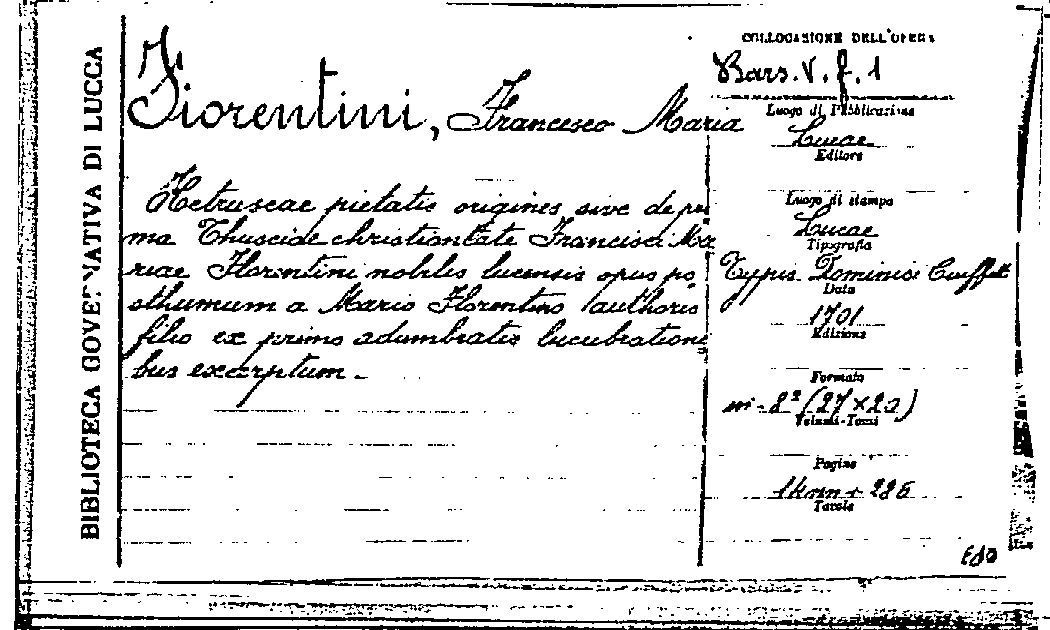 BIBLIOTECA GOVERNATIVA DI LUCCA
Fiorentini, Francesco Maria
Hetruscae pietatis origines sive de pri
ma Thusciae christianitate Francisci Ma
riae Florentini nobilis lucensis opus po
sthumum a Mario Florentino authoris
filio ex primo adumbratis lucubrationi
bus excerptum.
COLLOCAZIONE DELL'OPERA
Bars. V. f. 1
Luogo di Pubblicazione
Lucae
Editore
Luogo di stampa
Lucae
Tipografia
Typis Dominici
Data
1701
Edizione
Formato
in-8º (27×20)
Volumi-Tomi
Pagine
+ 226
Tavole